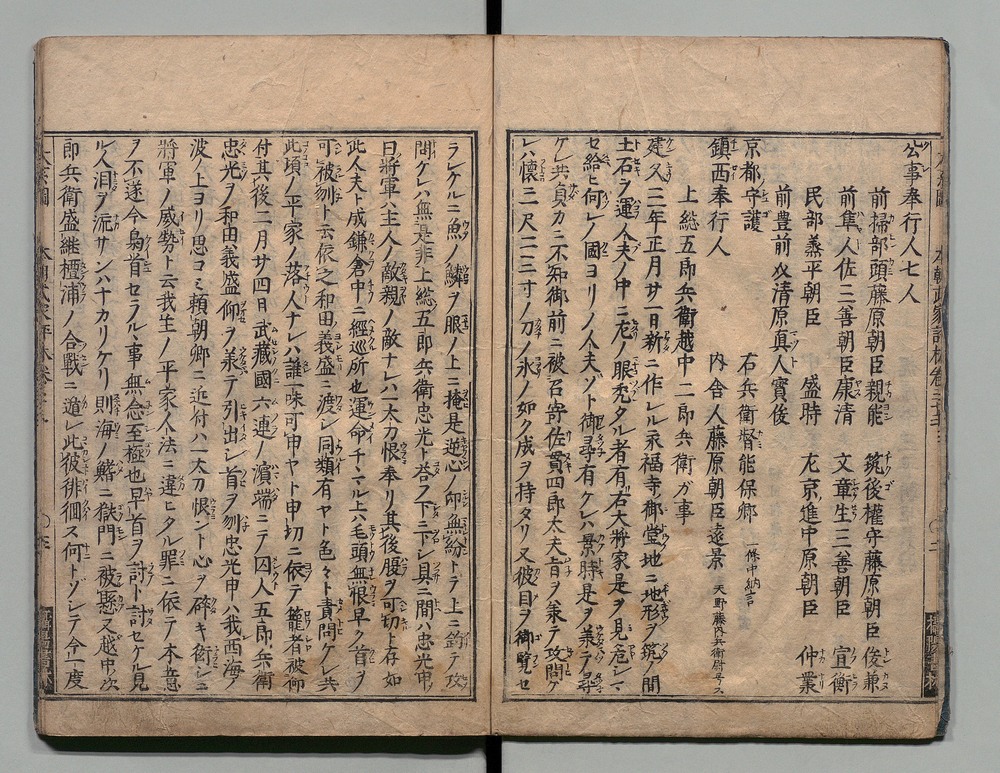 公事奉行人七人
前掃部頭藤原朝臣親能　筑後權守藤原朝臣俊兼
前隼人佐三善朝臣康清　文章生三善朝臣宣衡
民部丞平朝臣盛時　左京進中原朝臣仲業
前豊前介清原真人實俊
京都守護　右兵衛督能保卿　一條中納言
鎮西奉行人　内舎人藤原朝臣遠景　天野藤内兵衛尉号ス
上総五郎兵衛越中二郎兵衛ガ事
建久二年正月廿一日新ニ作レル永福寺御堂地ニ地形ヲ築ク間
土石ヲ運人夫ノ中ニ左ノ眼禿タル者有右大将家是ヲ見危シマ
セ給ヒ何レノ國ヨリノ人夫ゾト御尋有ケレハ景時是ヲ羕テ尋
ケレ共負カニ不知御前ニ被召寄佐貫四郎太夫旨ヲ羕テ攻問ケ
レハ懐ニ一尺二三寸ノ刀ノ氷ノ如ク成ヲ持タリ又彼目ヲ御覧セ
ラレケルニ魚ノ鱗ヲ眼ノ上ニ掩是逆心ノ叓無紛トテ上ニ釣テ攻
問ケレハ無是非上総五郎兵衛忠光ト答フ下ニ下シ具ニ問ハ忠光申
曰將軍ハ主人ノ敵親ノ敵ナレハ一太刀恨奉リ其後腹ヲ可切ト存如
此人夫ト成鎌倉中ニ經巡所也運命チヽマル上ハ毛頭無恨早ク首ヲ
可被刎ト云依之和田義盛ニ渡シ同類有ヤト色々ト責問ケレ共
此頃ノ平家ノ落人ナレハ誰一味可申ヤト申切ニ依テ籠者被仰
付其後二月廿四日武藏國六連ノ濵端ニテ囚人五郎兵衛
忠光ヲ和田義盛仰ヲ羕テ引出シ首ヲ刎忠光申ハ我西海ノ
波上ヨリ思コミ頼朝卿ニ近付ハ一太刀恨ント心ヲ碎キ術シニ
將軍ノ威勢ト云我主ノ平家人法ニ違ヒタル罪ニ依テ本意
ヲ不遂今梟首セラルヽ事無念至極也早首ヲ討ト討セケル見
ル人泪ヲ流サンハナカリケリ則海ノ鰭ニ獄門ニ被懸又越中次
郎兵衛盛継檀浦ノ合戰ニ遁レ此彼徘徊ス何トゾシテ今一度